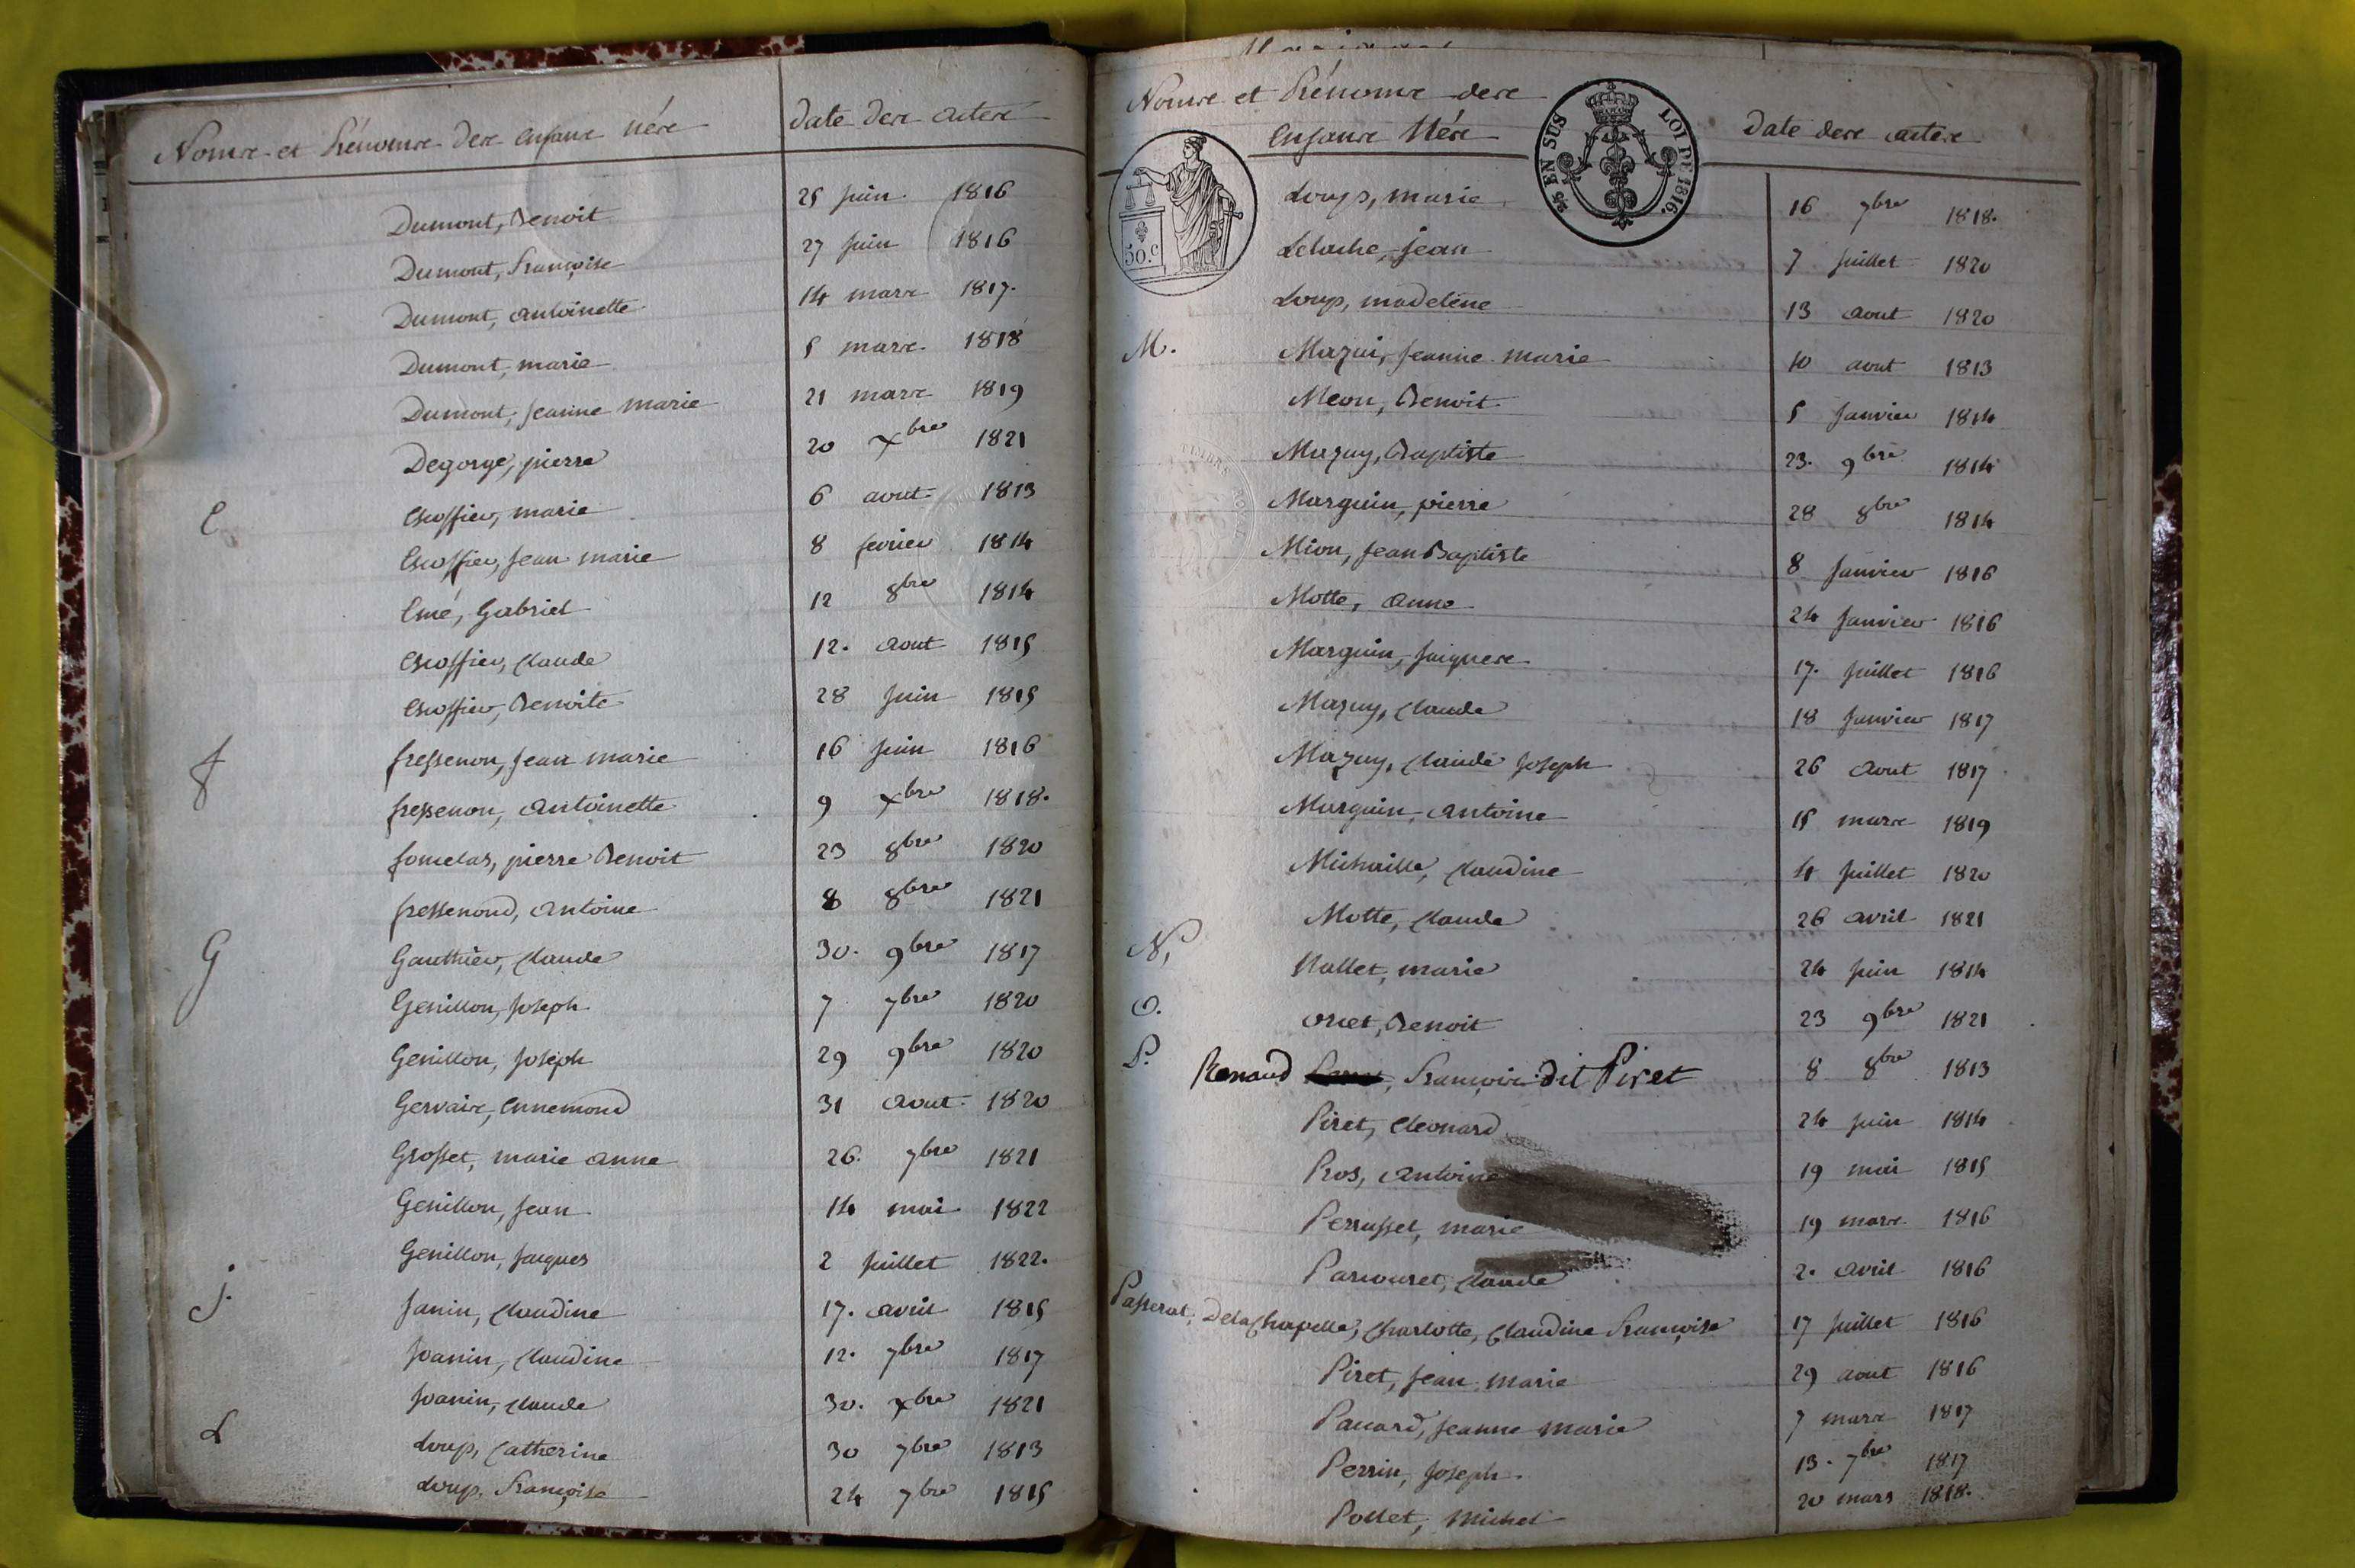 Noms et Prénoms des enfans nés date des actes
Dumont, Benoit 25 juin 1816
Dumont, Françoise 27 juin 1816
Dumont, antoinette 14 mars 1817.
Dumont, marie 5 mars 1818
Dumont, jeanne marie 21 mars 1819
Degorge, pierre 20 xbre 1821
E Escoffier, marie 6 aout 1813
Escoffier, jean marie 8 fevrier 1814
Emé, Gabriel 12 8bre 1814
Escoffier, claude 12. aout 1815
Escoffier, Benoite 28 juin 1815
f fressenon, jean marie 16 juin 1816
fressenon, antoinette 9 xbre 1818.
fomelas, pierre Benoit 23 8bre 1820
fressenond, antoine 8 8bre 1821
G Gauthier, claude 30. 9bre 1817
Genillon, joseph 7 7bre 1820
Genillon, joseph 29 9bre 1820
Gervais, Ennemond 31 aout 1820
Grosset, marie anne 26. 7bre 1821
Genillon, jean 14 mai 1822
Genillon, jacques 2 juillet 1822.
j. Janin, claudine 17. avril 1815
Joanin, claudine 12. 7bre 1817
Joanin, claude 30. xbre 1821
L Loup, catherine 30 7bre 1813
Loup, Françoise 24 7bre 1815
Noms et Prénoms des
enfans Nés date des actes
50.c
25 EN SUS LOI DE 1816.
Loup, marie 16 7bre 1818.
Leloche, jean 7 juillet 1820
Loup, madeleine 13 aout 1820
M. Mazui, jeanne marie 10 aout 1813
Meon, Benoit 5 janvier 1814
Mazuy, Baptiste 23. 9bre 1814
TIMBRE ROYAL
Marguin, pierre 28 8bre 1814
Mion, jean Baptiste 8 janvier 1816
Motte, anne 24 janvier 1816
Marguin, jaiques 17. juillet 1816
Mazuy, claude 18 janvier 1817
Mazuy, claude joseph 26 aout 1817
Marguin, antoine 15 mars 1819
Michaille, claudine 4 juillet 1820
Motte, claude 26 avril 1821
N, Nallet, marie 24 juin 1814
O. oriet, Benoit 23 9bre 1821
P. Renaud, François dit Piret 8 8bre 1813
Piret, Cleonard 24 juin 1814
Pros, antoine 19 mai 1815
Perrusset, marie 19 mars 1816
Parcouret, claude 2. avril 1816
Passerat, De la Chapelle, Charlotte, Claudine Françoise 17 juillet 1816
Piret, jean marie 29 aout 1816
Pauard, jeanne marie 7 mars 1817
Perrin, joseph. 13. 7bre 1817
Pollet, michel 20 mars 1818.